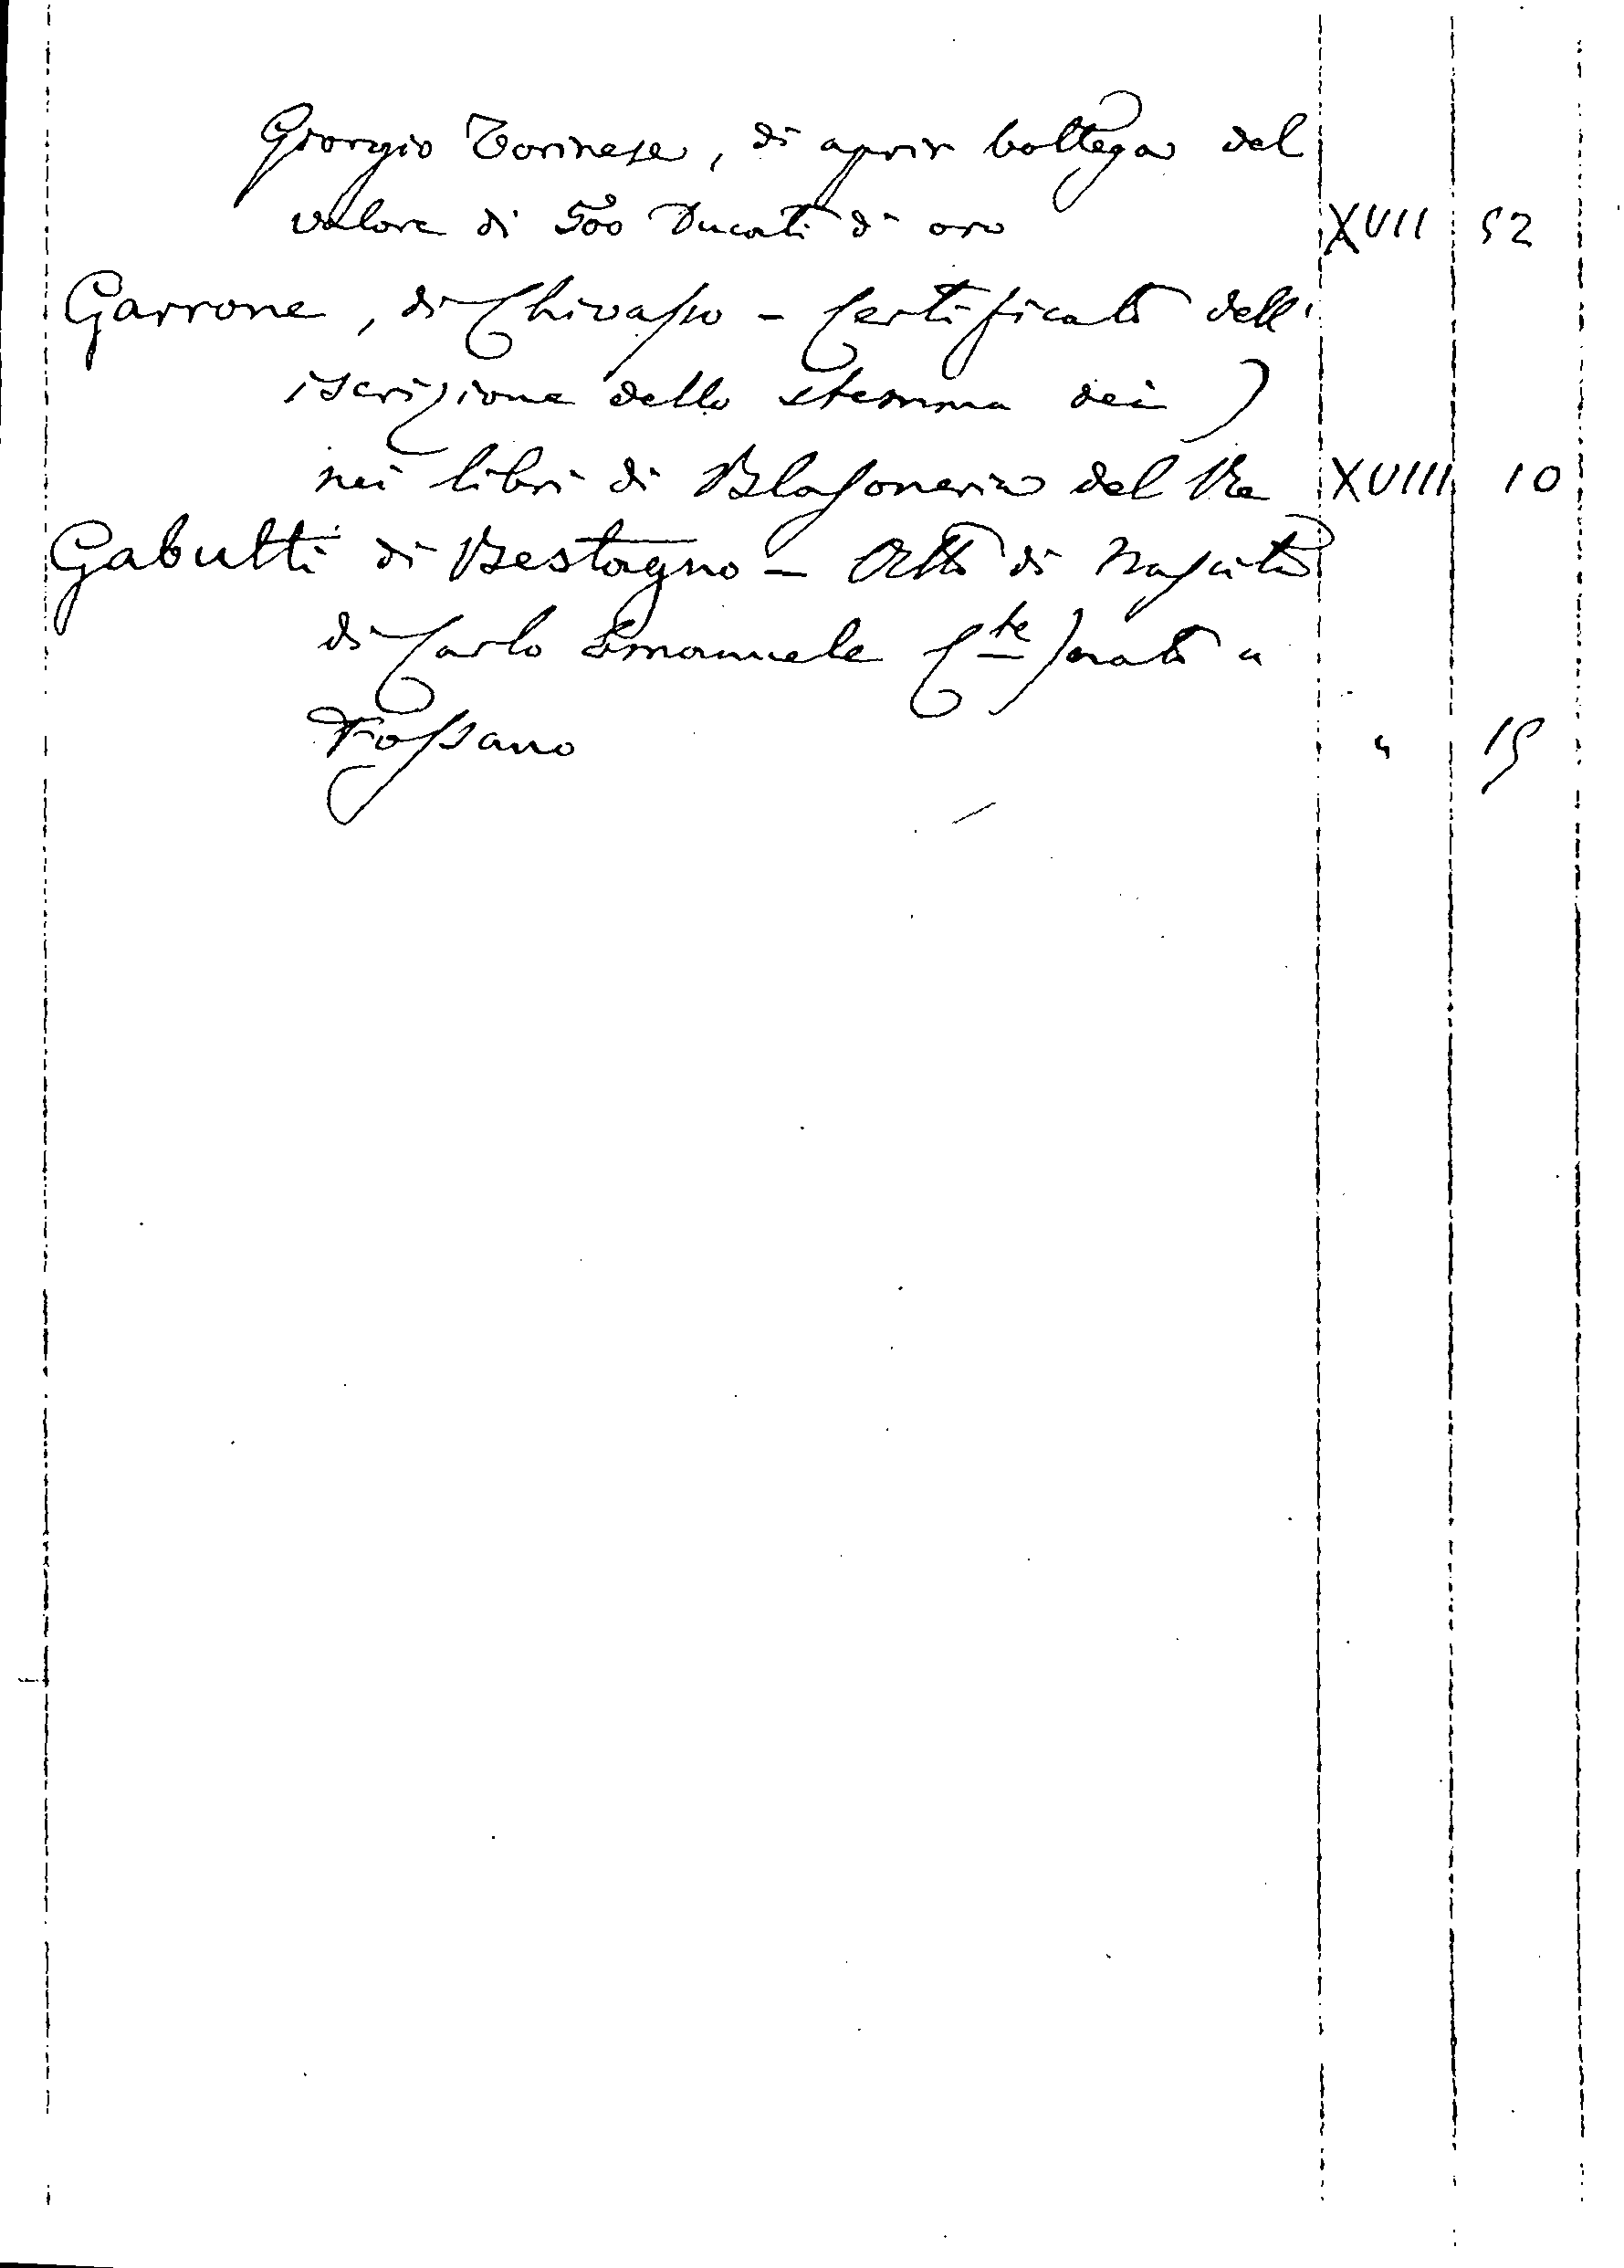 Giorgio Torinese, di aprir bottega del
valore di 500 Ducati di oro XVII 52
Garrone, di Chivasso - Certificato dell'
iscrizione dello stemma dei )
nei libri di Blasoneria del Re XVIII 10
Gabutti di Bestagno - Atto di nascita
di Carlo Emanuele C.te ) nato a
Fossano " 15